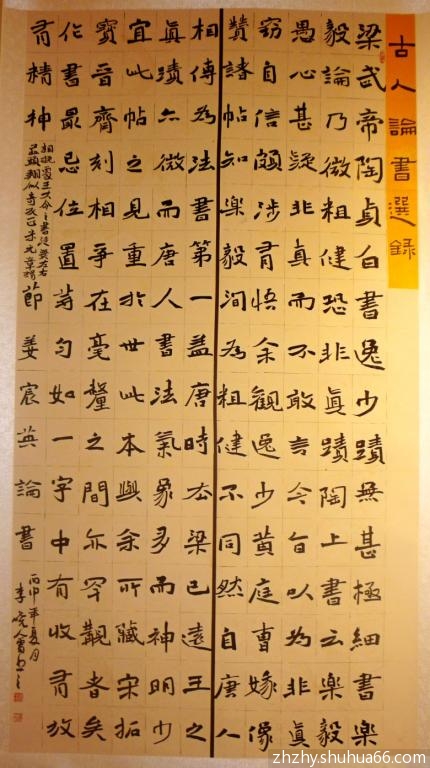 古人論書選錄
梁武帝陶貞白書逸少蹟無甚極細書樂
毅論乃微粗健恐非真蹟陶上書云樂毅
愚心甚疑非真而不敢言今旨以為非真
竊自信頗涉有悟余觀逸少黃庭曹娥像
贊諸帖知樂毅澗為粗健不同然自唐人
相傳為法書第一蓋唐時去梁已遠王之
真蹟亦微而唐人書法氣象多而神明少
宜此帖之見重於世此本與余所藏宋拓
寶晉齋刻相爭在毫釐之間亦罕覯者矣
作書最忌位置等勻如一字中有收有放
有精神
相挽處王大令之書從無左右
似奇反正米元章
節姜宸英論書
丙申年夏月
李
zhzhy.shuhua66.com